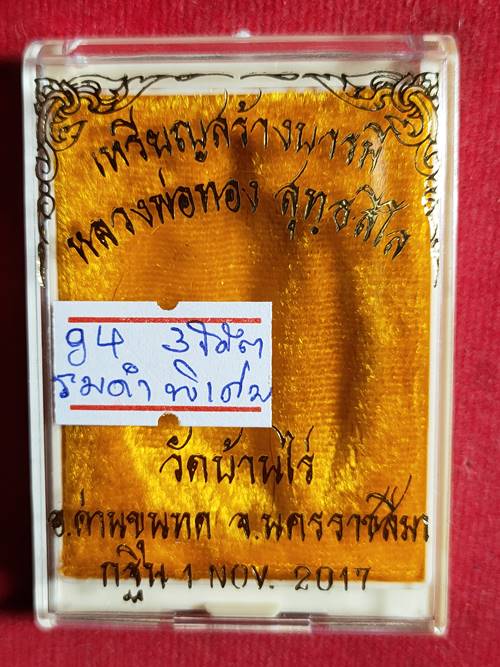 เหรียญสร้างบารมี
หลวงพ่อทอง สุทฺธสีโล
94 3โค๊ต
รมดำ พิเศษ
วัดบ้านไร่
อ.ด่านขุนทด จ.นครราชสีมา
กฐิน 1 NOV. 2017